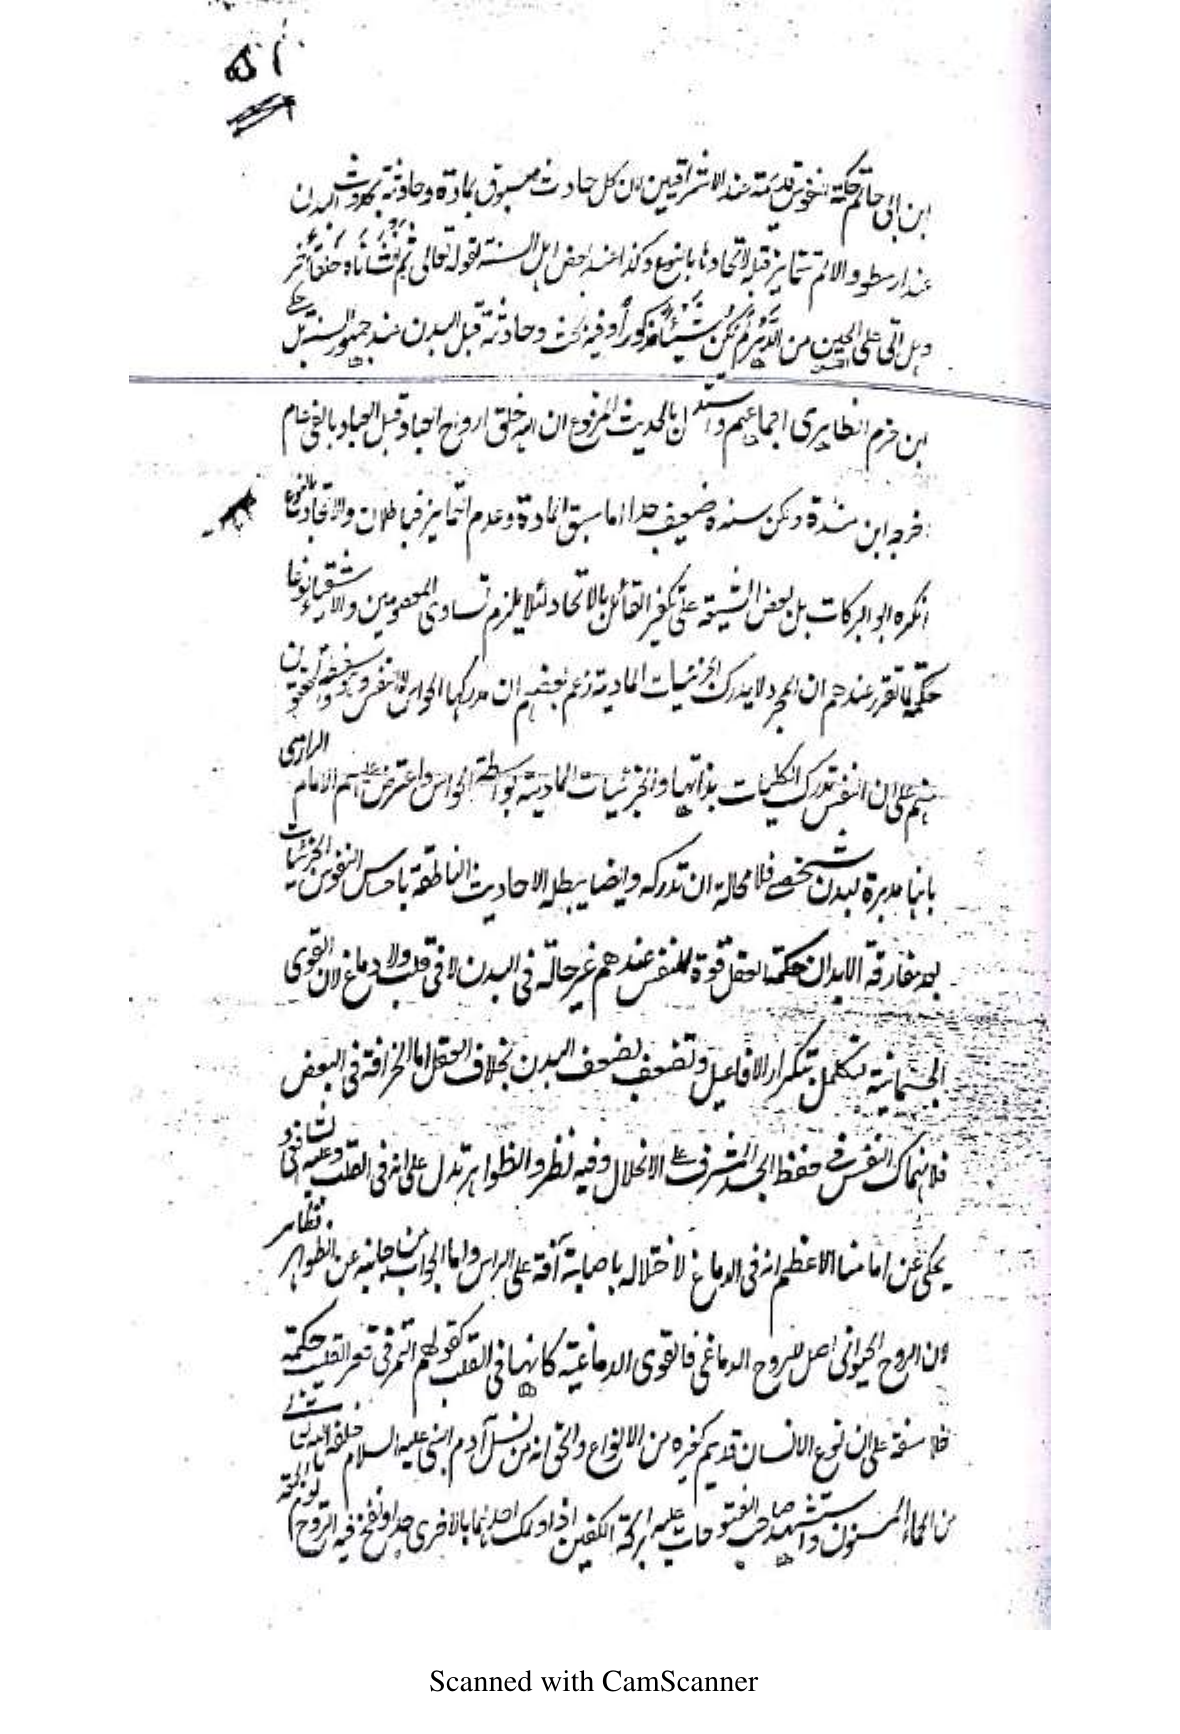 ۵۱
ابن ابی حاتم حكمة نفوس قديمة عند الاشراقيين لان كل حادث مسبوق بمادة وحادثة بحدوث البدن
عند ارسطو والا لم تتمايز قبله لاتحادها بالنوع وكذا عند بعض اهل السنة لقوله تعالى ثم انشأناه خلقا آخر
وهل اتى على الحين من الدهر لم يكن شيئا مذكورا وفيه بحث وحادثة قبل البدن عند جمهور السنة بل حكى
ابن حزم الظاهرى اجماعهم واستدلن بالحديث المرفوع ان الله خلق ارواح العباد قبل العباد بالفى عام
خرجه ابن مندة ولكن سنده ضعيف جدا اما سبق المادة وعدم التمايز فباطلان والاتحاد بالنوع
انكره ابو البركات بل بعض الشيعة على تكفير القائل بالاتحاد لئلا يلزم تساوى المعصومين والاشقياء نوعا
حكمة لما تقرر عندهم ان المجرد لا يدرك الجزئيات المادية زعم بعضهم ان مدركها الحواس لا النفس والمحققون
منهم على ان النفس تدرك الكليات بذاتها والجزئيات المادية بواسطة الحواس واعترض عليهم الامام الرازى
بانها مدبرة لبدن شخصى فلا محالة ان تدركه وايضا يبطله الاحاديث الناطقة باحساس النفوس الجزئيات
بعد مفارقة الابدان حكمة العقل قوة للنفس عندهم غير حالة فى البدن لا فى قلب ولا دماغ لان القوى
الجسمانية تتكمل بتكرار الافاعيل وتضعف بضعف البدن بخلاف العقل اما الخرافة فى البعض
فلانهماك النفس فى حفظ الجسد المشرف على الانحلال وفيه نظر والظواهر تدل على انه فى القلب وعليه الشافعى
يحكى عن امامنا الاعظم انه فى الدماغ لاختلاله باصابة آفة على الراس واما الجواب من جانبه عن الظواهر
لان الروح الحيوانى اصل للروح الدماغى فالقوى الدماغية كانها فى القلب كقولهم الثمر فى قعر القلب حكمة
فلاسفة على ان نوع الانسان قديم كغيره من الانواع والحق انه من نسل آدم النبى عليه السلام خلقه الله تعالى
من الحماء المسنون واستشهد صاحب الفتوحات عليه حركة الكفين اذا دلك احدهما بالاخرى جدا ونفخ فيه الروح